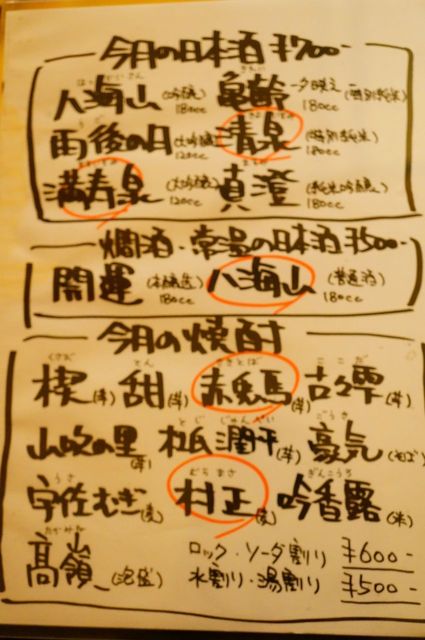 今月の日本酒 ¥700-
はっかいさん きれい
八海山(吟醸)180cc 亀齢 夕映え(特別純米)180cc
雨後の月(大吟醸)120cc 清泉(特別純米)180cc
満寿泉(大吟醸)120cc 真澄(純米吟醸)180cc
燗酒・常温の日本酒 ¥500-
開運(本醸造)180cc 八海山(普通酒)180cc
今月の焼酎
てん せきとば
(芋) 甜(芋) 赤兎馬(芋) (芋)
とじ じゅんぺい ごうき
山吹の里(芋) 杜氏潤平(芋) 豪気(そば)
うさ むらまさ ぎんこうろ
宇佐むぎ(麦) 村正(麦) 吟香露(米)
たかみね
高嶺(泡盛) ロック・ソーダ割り ¥600-
水割り・湯割り ¥500-